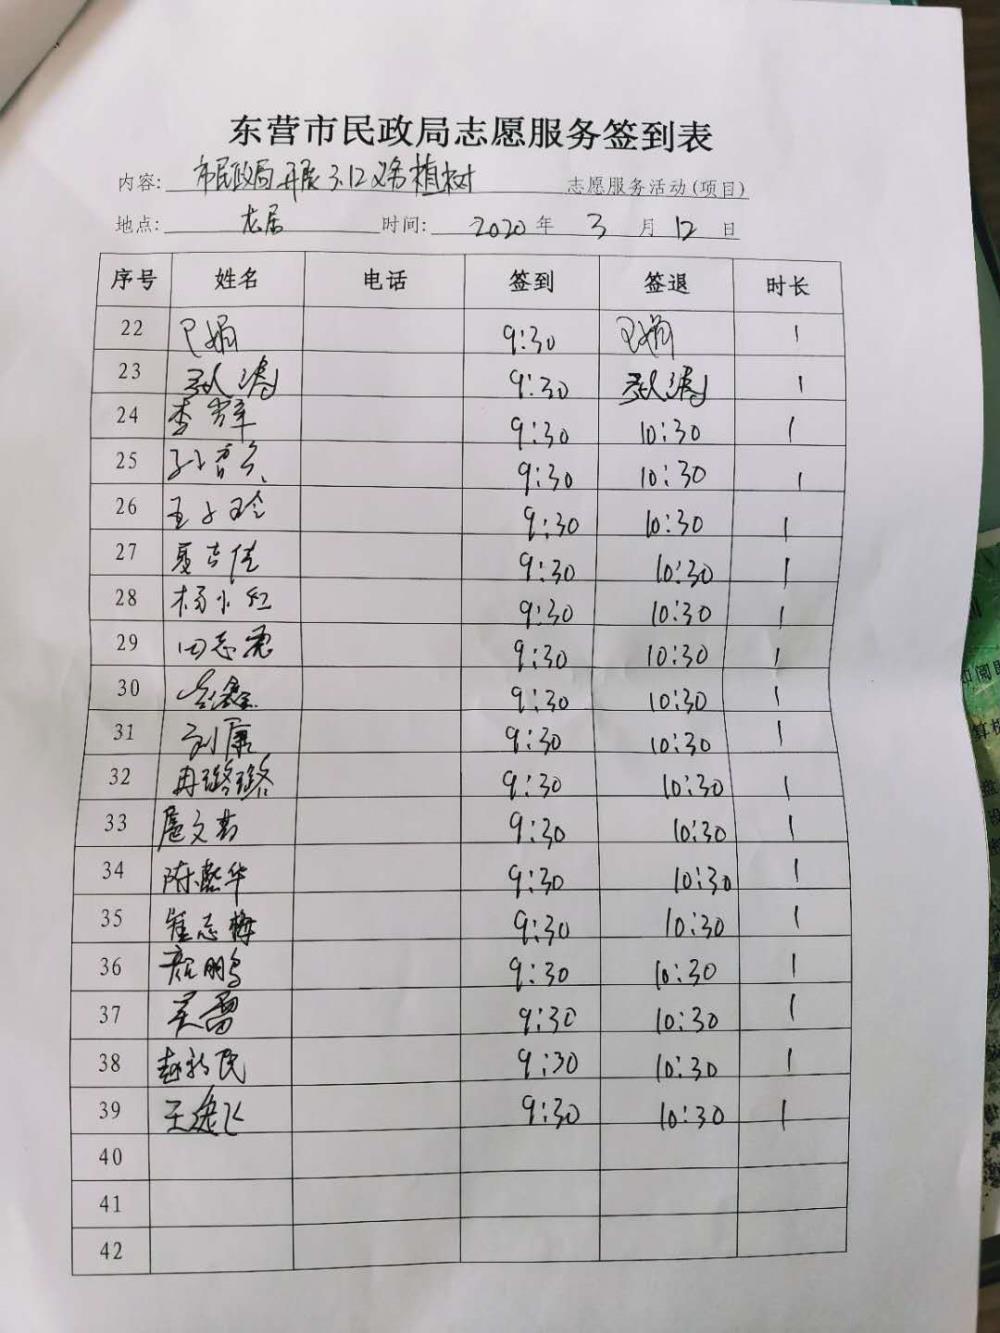 东营市民政局志愿服务签到表
内容: 市民政局开展3.12义务植树 志愿服务活动(项目)
地点: 龙居 时间: 2020 年 3 月 12 日
序号 姓名 电话 签到 签退 时长
22 巴娟 9:30 巴娟 1
23 9:30 1
24 李 9:30 10:30 1
25 9:30 10:30 1
26 王 玲 9:30 10:30 1
27 夏 9:30 10:30 1
28 杨小红 9:30 10:30 1
29 田志 9:30 10:30 1
30 鑫 9:30 10:30 1
31 刘康 9:30 10:30 1
32 冉璐璐 9:30 10:30 1
33 扈文 9:30 10:30 1
34 陈 华 9:30 10:30 1
35 崔志梅 9:30 10:30 1
36 鹏 9:30 10:30 1
37 雷 9:30 10:30 1
38 赵新民 9:30 10:30 1
39 王逸飞 9:30 10:30 1
40
41
42